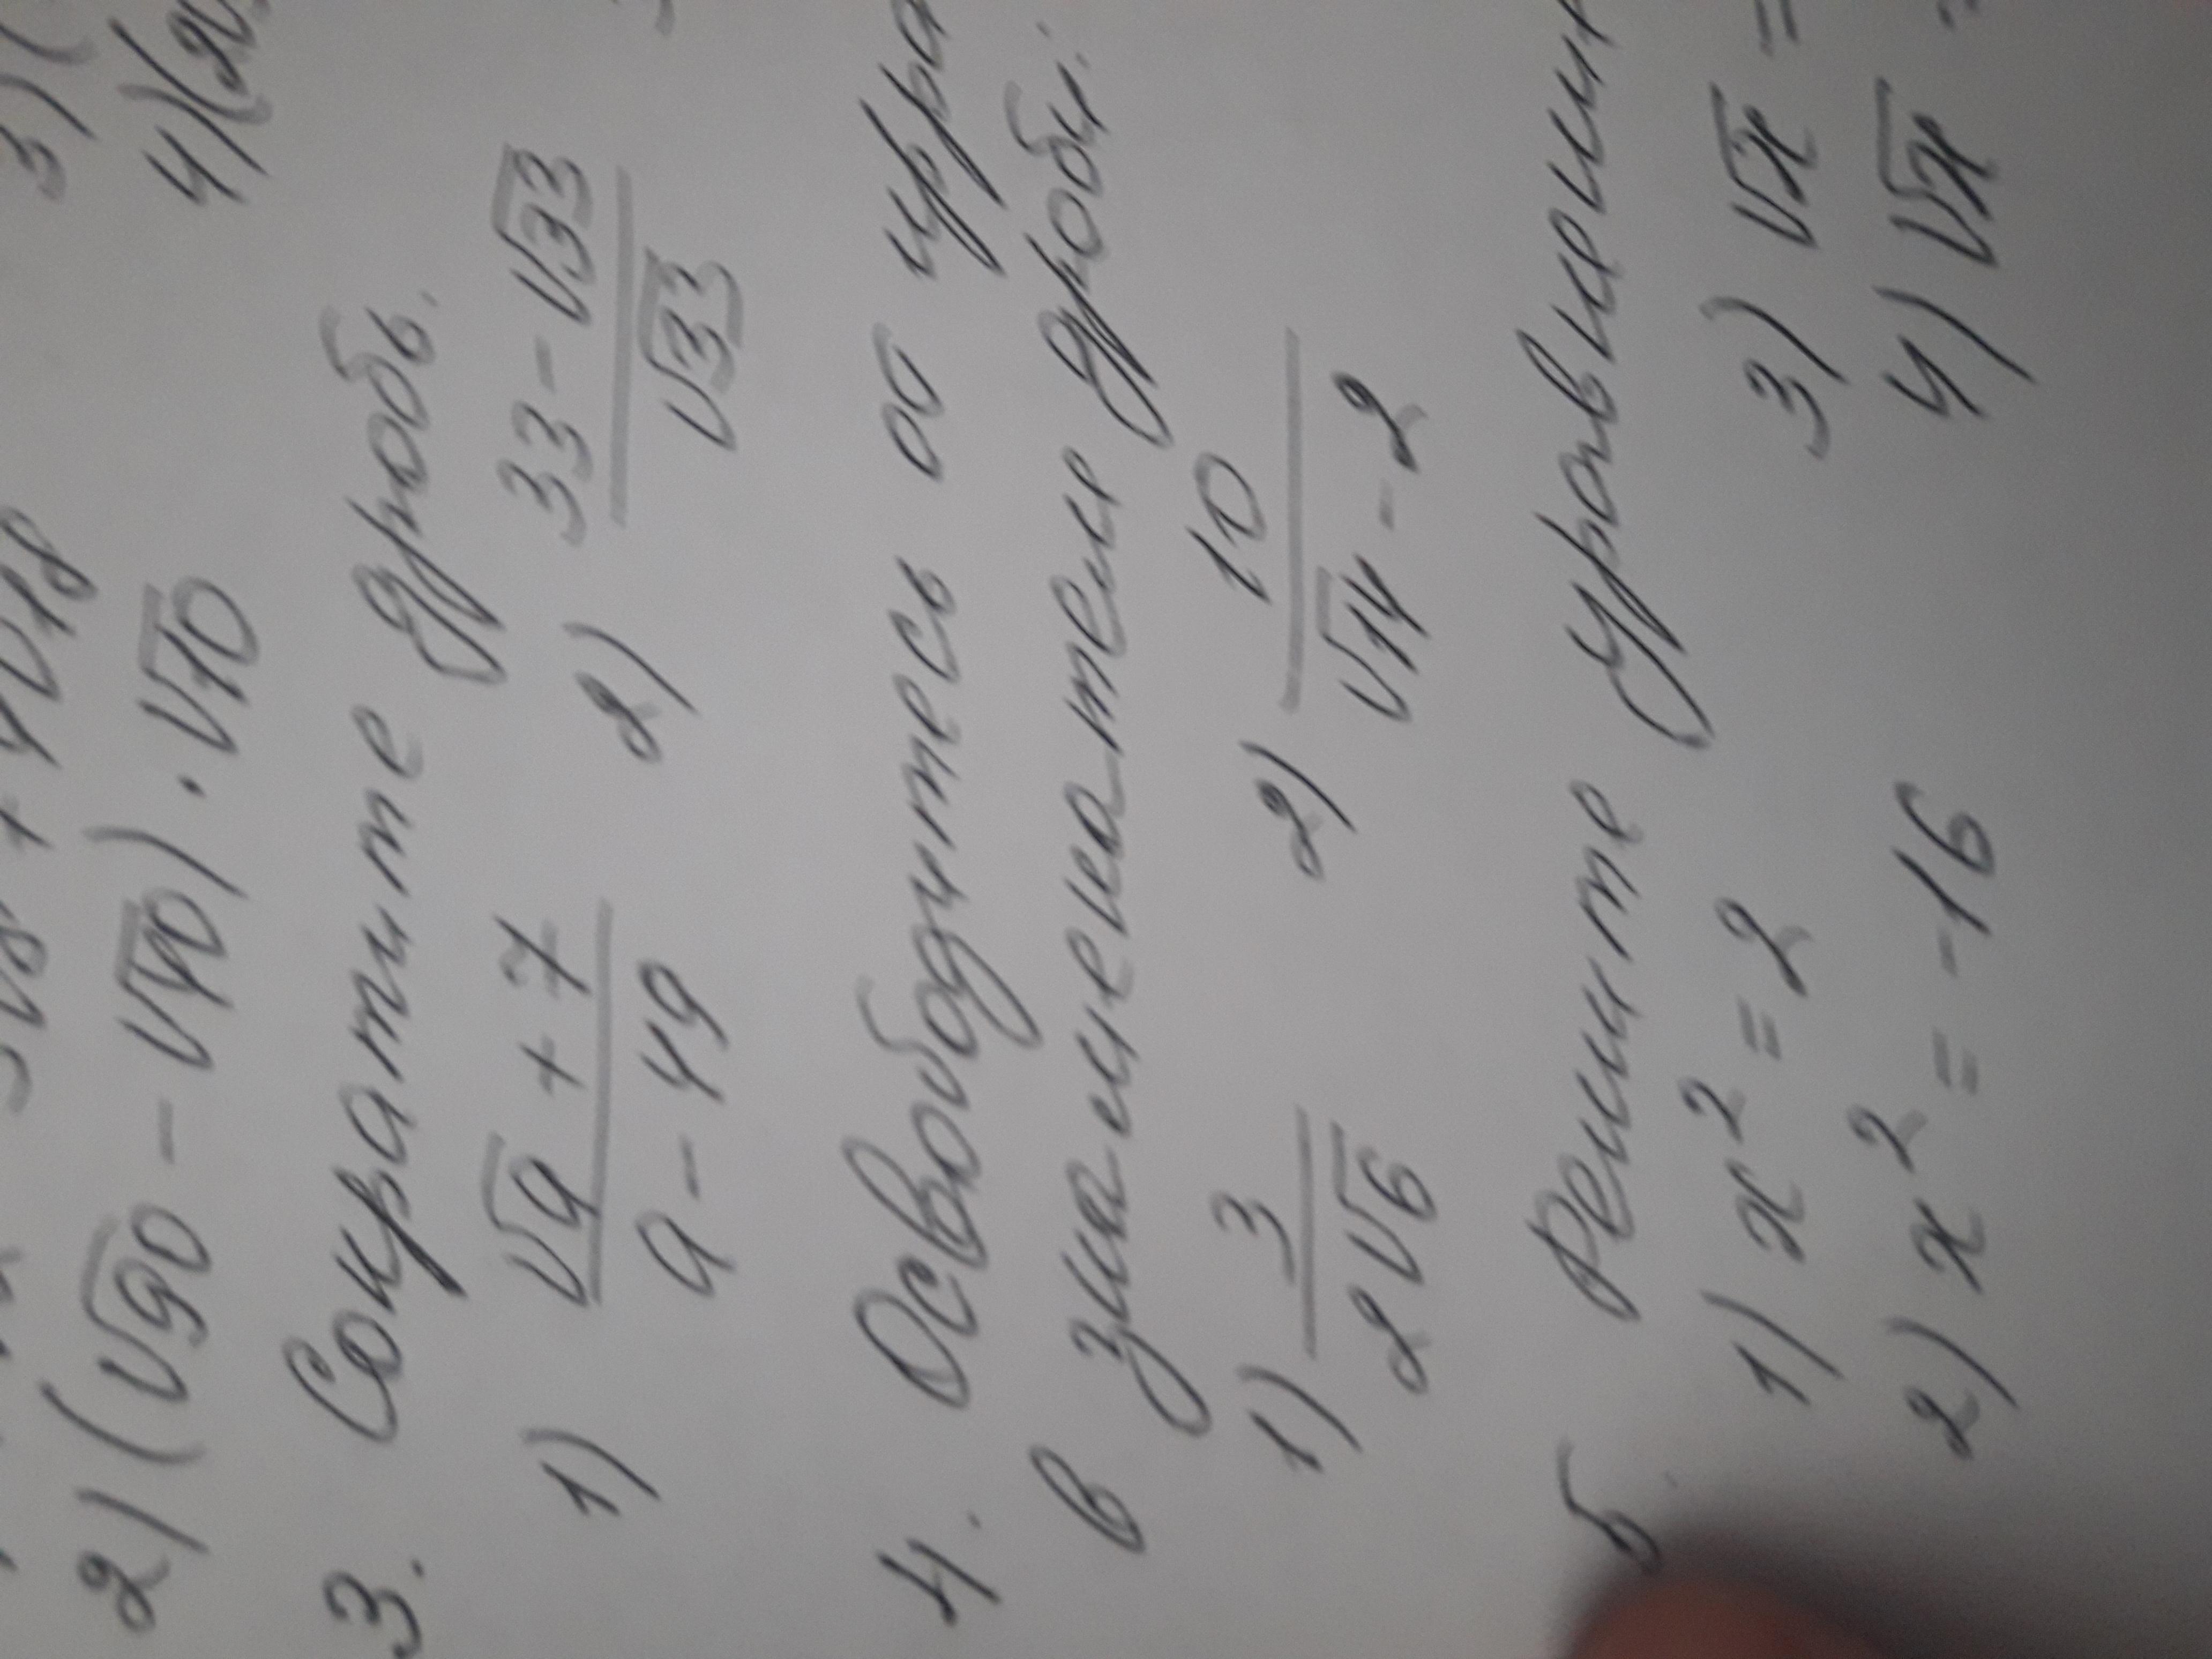 3) (
4) (20
2) (√90 - √40) · √10
3. Сократите дробь.
1) (√a + 7)/(a - 49) 2) (33 - √33)/√33
4. Освободитесь от
в знаменателе дроби:
1) 3/(2√6) 2) 10/(√14 - 2)
5. Решите уравнени
1) x² = 2 3) √x =
2) x² = -16 4) √x =